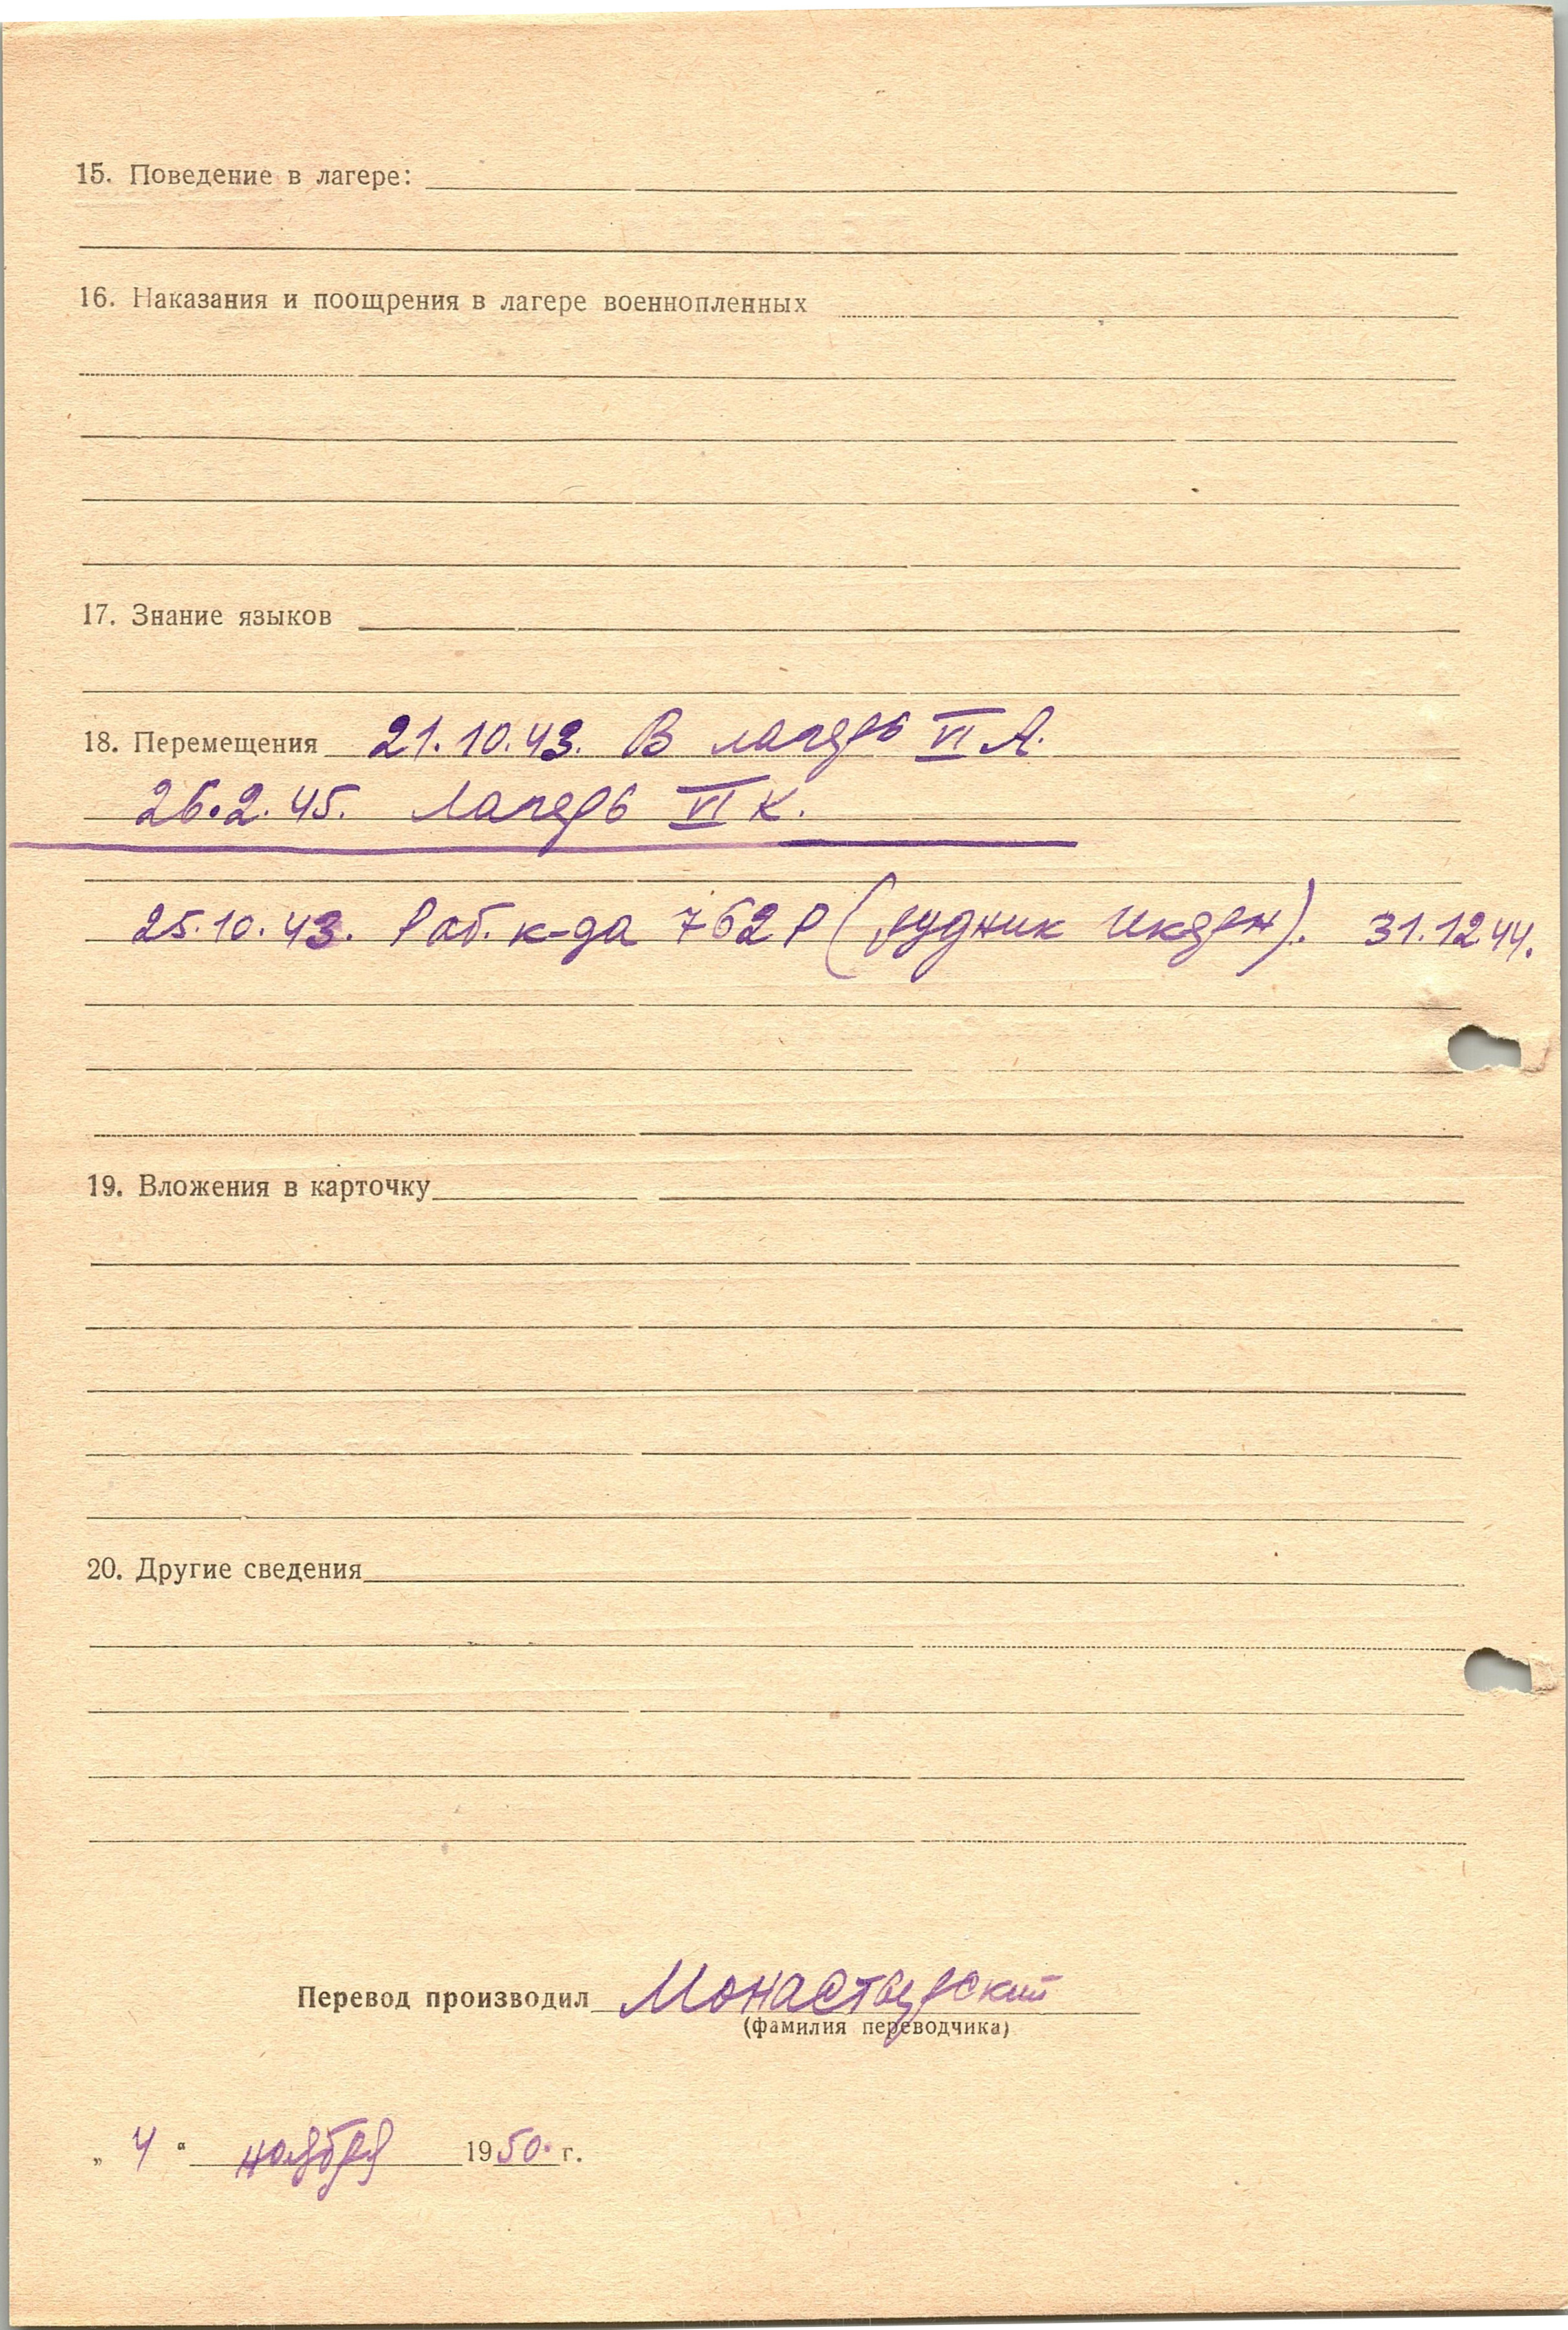 15. Поведение в лагере:
16. Наказания и поощрения в лагере военнопленных
17. Знание языков
18. Перемещения 21.10.43. В лагерь VI А.
26.2.45. Лагерь VI К.
25.10.43. Раб. к-да 762 Р (рудник Икерн). 31.12.44.
19. Вложения в карточку
20. Другие сведения
Перевод производил Монастырский
(фамилия переводчика)
„ 4 “ ноября 1950. г.